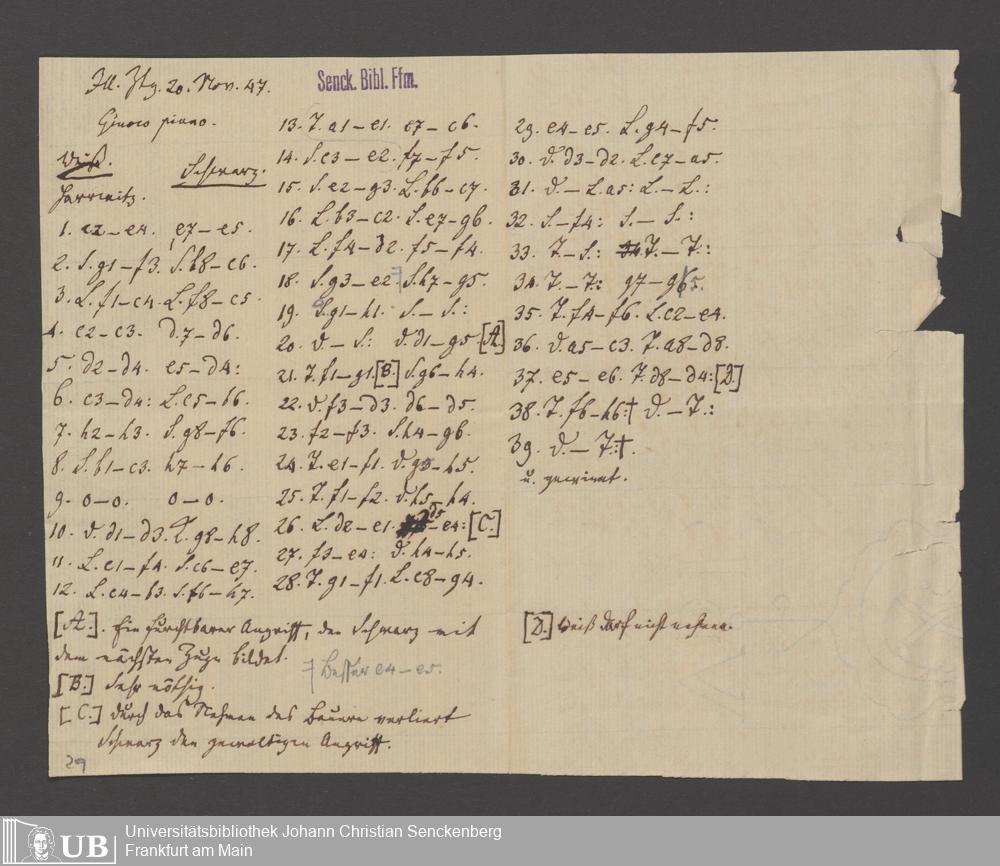 Ill. Ztg. 20. Nov. 47.
Senck. Bibl. Ffm.
Giuoco piano.
Weiß. Schwarz.
Harrwitz.
1. e2–e4. e7–e5.
2. S. g1–f3. S. b8–c6.
3. L. f1–c4. L. f8–c5.
4. c2–c3. d7–d6.
5. d2–d4. e5–d4:
6. c3–d4: L. c5–b6.
7. h2–h3. S. g8–f6.
8. S. b1–c3. h7–h6.
9. 0–0. 0–0.
10. D. d1–d3. K. g8–h8.
11. L. c1–f4. S. c6–e7.
12. L. c4–b3. S. f6–h7.
13. T. a1–e1. c7–c6.
14. S. c3–e2. f7–f5.
15. S. e2–g3. L. b6–c7.
16. L. b3–c2. S. e7–g6.
17. L. f4–d2. f5–f4.
18. S. g3–e2. S. h7–g5.
19. K. g1–h1. S.–S.:
20. D.–S: D. d1–g5. [A.]
21. T. f1–g1. [B.] S. g6–h4.
22. D. f3–d3. d6–d5.
23. f2–f3. S. h4–g6.
24. T. e1–f1. D. g5–h5.
25. T. f1–f2. D. h5–h4.
26. L. d2–e1. d5–e4: [C.]
27. f3–e4: D. h4–h5.
28. T. g1–f1. L. c8–g4.
29. e4–e5. L. g4–f5.
30. D. d3–d2. L. c7–a5.
31. D.–L. a5: L.–L.:
32. S.–f4: S.–S.:
33. T.–S.: T.–T.:
34. T.–T.: g7–g5.
35. T. f4–f6. L. c2–e4.
36. D. a5–c3. T. a8–d8.
37. e5–e6. T. d8–d4: [D.]
38. T. f6–h6:† D.–T.:
39. D.–T.:†.
u. gewinnt.
[A.]. Ein furchtbarer Angriff, den Schwarz mit
dem nächsten Zuge bildet.
Besser e4–e5.
[B.] Sehr nöthig.
[C.] Durch das Nehmen des Bauern verliert
Schwarz den gewaltigen Angriff.
[D.] Weiß darf nicht nehmen.
29
UB Universitätsbibliothek Johann Christian Senckenberg
Frankfurt am Main